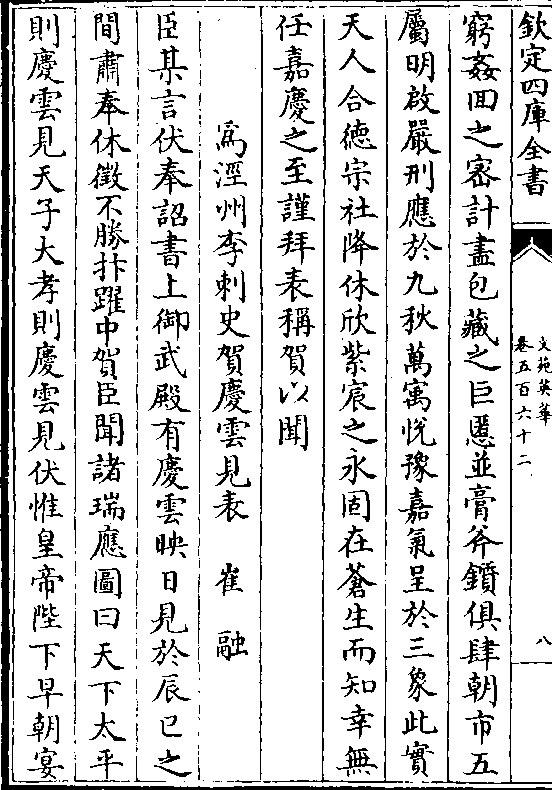 欽定四庫全書
文苑英華
卷五百六十二
八
窮姦回之密計盡包藏之巨慝並膏斧鑕俱肆朝市五
屬明啟嚴刑應於九秋萬㝢悅豫嘉氣呈於三象此實
天人合德宗社降休欣紫宸之永固在蒼生而知幸無
任嘉慶之至謹拜表稱賀以聞
為涇州李刺史賀慶雲見表 崔融
臣某言伏奉詔書上御武殿有慶雲映日見於辰巳之
間肅奉休徵不勝抃躍中賀臣聞諸瑞應圖曰天下太平
則慶雲見天子大孝則慶雲見伏惟皇帝陛下早朝宴